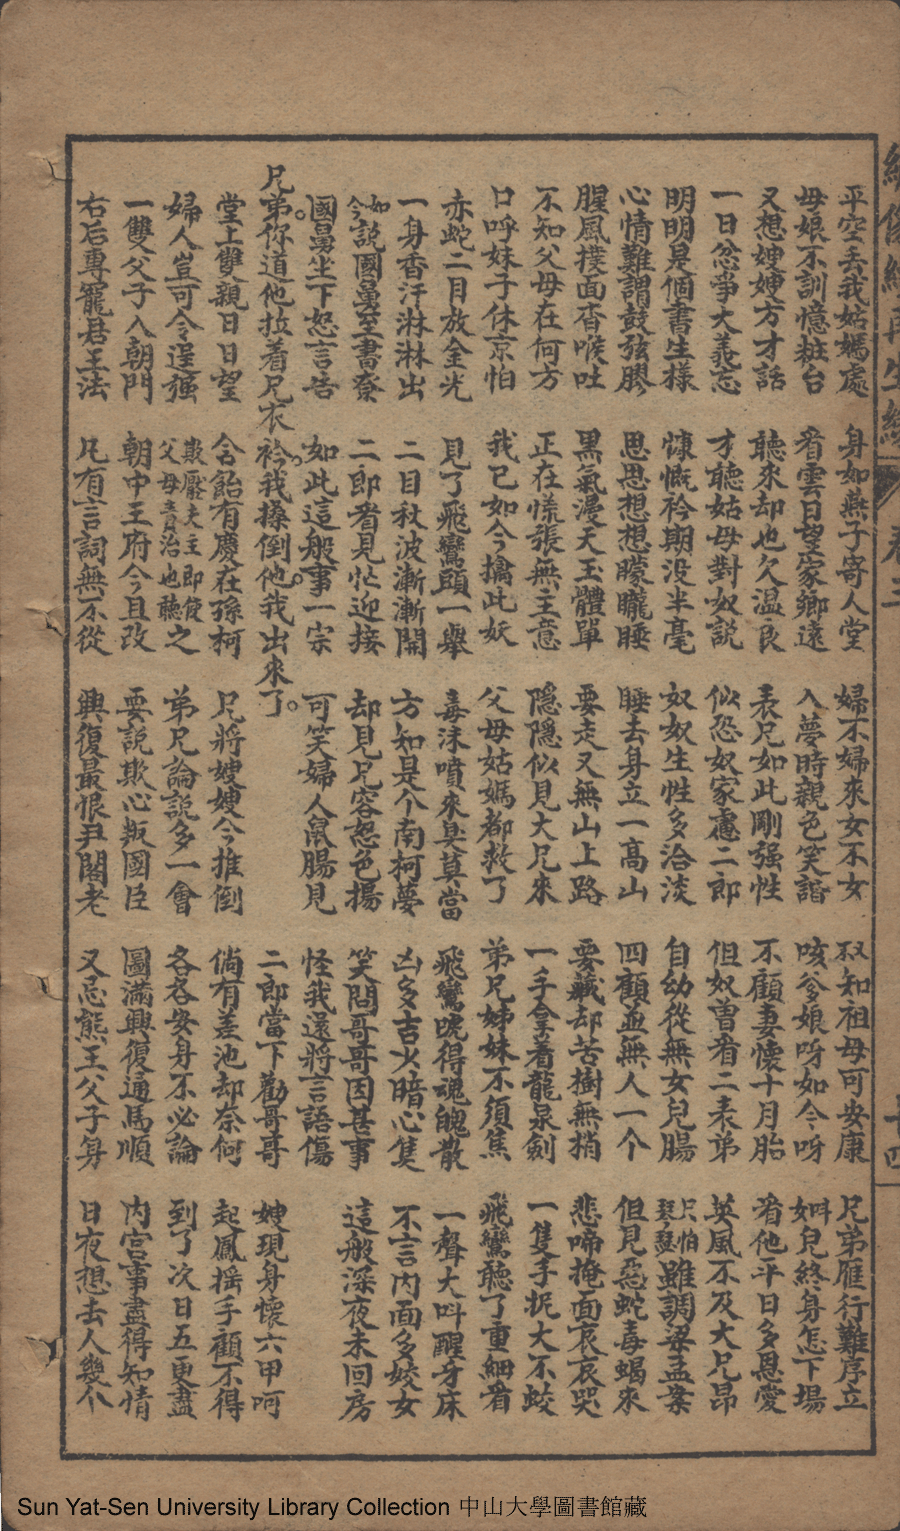 再生緣 卷三
平空丢我姑媽處 身如燕子寄人堂 婦不婦來女不女 不知祖母可安康 兄弟雁行難序立
毋娘不訓憶粧台 看雲日望家鄉遠 入夢時親色笑諧 咳爹娘呀如今呀 如叫兒終身怎下場
又想嫂嬸方才話 聽來却也久温良 表兄如此剛强性 不顧妻懷十月胎 看他平日多恩愛
一日忿爭大義忘 才聽姑毋對奴說 似恐奴家慮二郎 但奴曽看二表弟 英風不及大兄昂
明明是個書生樣 慷慨衿期没半毫 奴奴生性多洽淡 自幼從無女兒腸 只怕琴瑟雖調梁孟案
心情難謂鼓弦膠 思思想想朦朧睡 睡去身立一高山 四顧並無人一个 但見惡蛇毒蝎來
腥風撲面香喉吐 黒氣漫天玉體單 要走又無山上路 要藏却苦樹無梢 悲啼掩面哀哀哭
不知父母在何方 正在慌張無主意 隱隱似見大兄來 一手拿着龍泉劍 一隻手扼大不蛟
口呼妹子休京怕 我已如今擒此妖 父毋姑媽都救了 弟兄姊妹不須焦 飛鸞聽了重細看
赤蛇二目放金光 見了飛鸞頭一舉 毒沫噴來臭莫當 飛鸞唬得魂魄散 一聲大呌醒牙床
一身香汗淋淋出 二目秋波漸漸開 方知是个南柯夢 凶多吉少暗心隻 不言内面多姣女
如今說國舅至書齋 二郎看見忙迎接 却見兄容怒色揚 笑問哥哥因甚事 這般深夜未回房
國舅坐下怒言告 如此這般事一宗 可笑婦人鼠腸見 怪我還將言語傷
兄弟。你道他拉着兄衣衿。我搡倒他。我出來了。 二郎當下勸哥哥 嫂現身懷六甲呵
堂上雙親日日望 含飴有慶在孫柯 兄將嫂嫂今推倒 倘有差池却奈何 起鳳揺手顧不得
婦人豈可令逞强 欺壓夫主即使父母責治也聽之 弟兄論說多一會 各各安身不必論 到了次日五更盡
一雙父子入朝門 朝中王府今且改 要說欺心叛國臣 圖滿興復通馬順 内宫事盡得知情
右后專寵君王法 凡有言詞無不從 興復最恨尹閣老 又忌熊王父子身 日夜想去人幾个
Sun Yat-Sen University Library Collection 中山大學圖書館藏